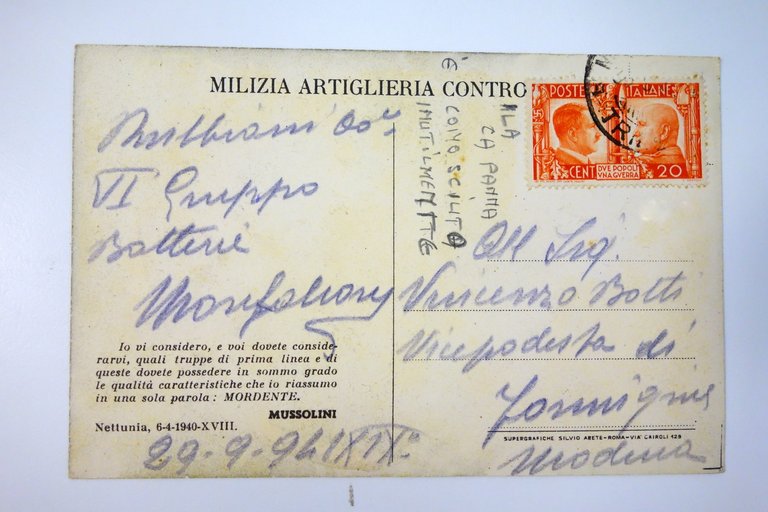 MILIZIA ARTIGLIERIA CONTRO
POSTE ITALIANE
DVE POPOLI
VNA GVERRA
CENT 20
VI Gruppo
Batterie
Io vi considero, e voi dovete conside-
rarvi, quali truppe di prima linea e di
queste dovete possedere in sommo grado
le qualità caratteristiche che io riassumo
in una sola parola : MORDENTE.
MUSSOLINI
Nettunia, 6-4-1940-XVIII.
29-9-941 XIX°
È CONOSCIUTO
INUTILMENTE
LA
CAPANNA
All Sig.
Vincenzo Botti
Vicepodestà di
Modena
SUPERGRAFICHE SILVIO ABETE-ROMA-VIA CAIROLI 129